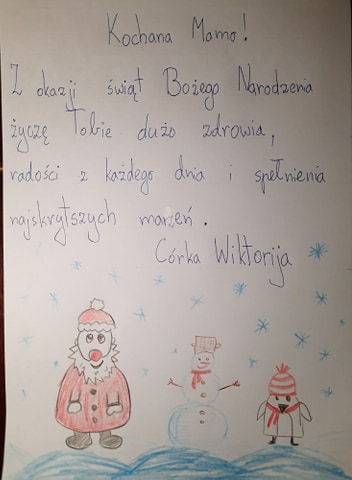 Kochana Mamo!
Z okazji świąt Bożego Narodzenia
życzę Tobie dużo zdrowia,
radości z każdego dnia i spełnienia
najskrytszych marzeń.
Córka Wiktorija